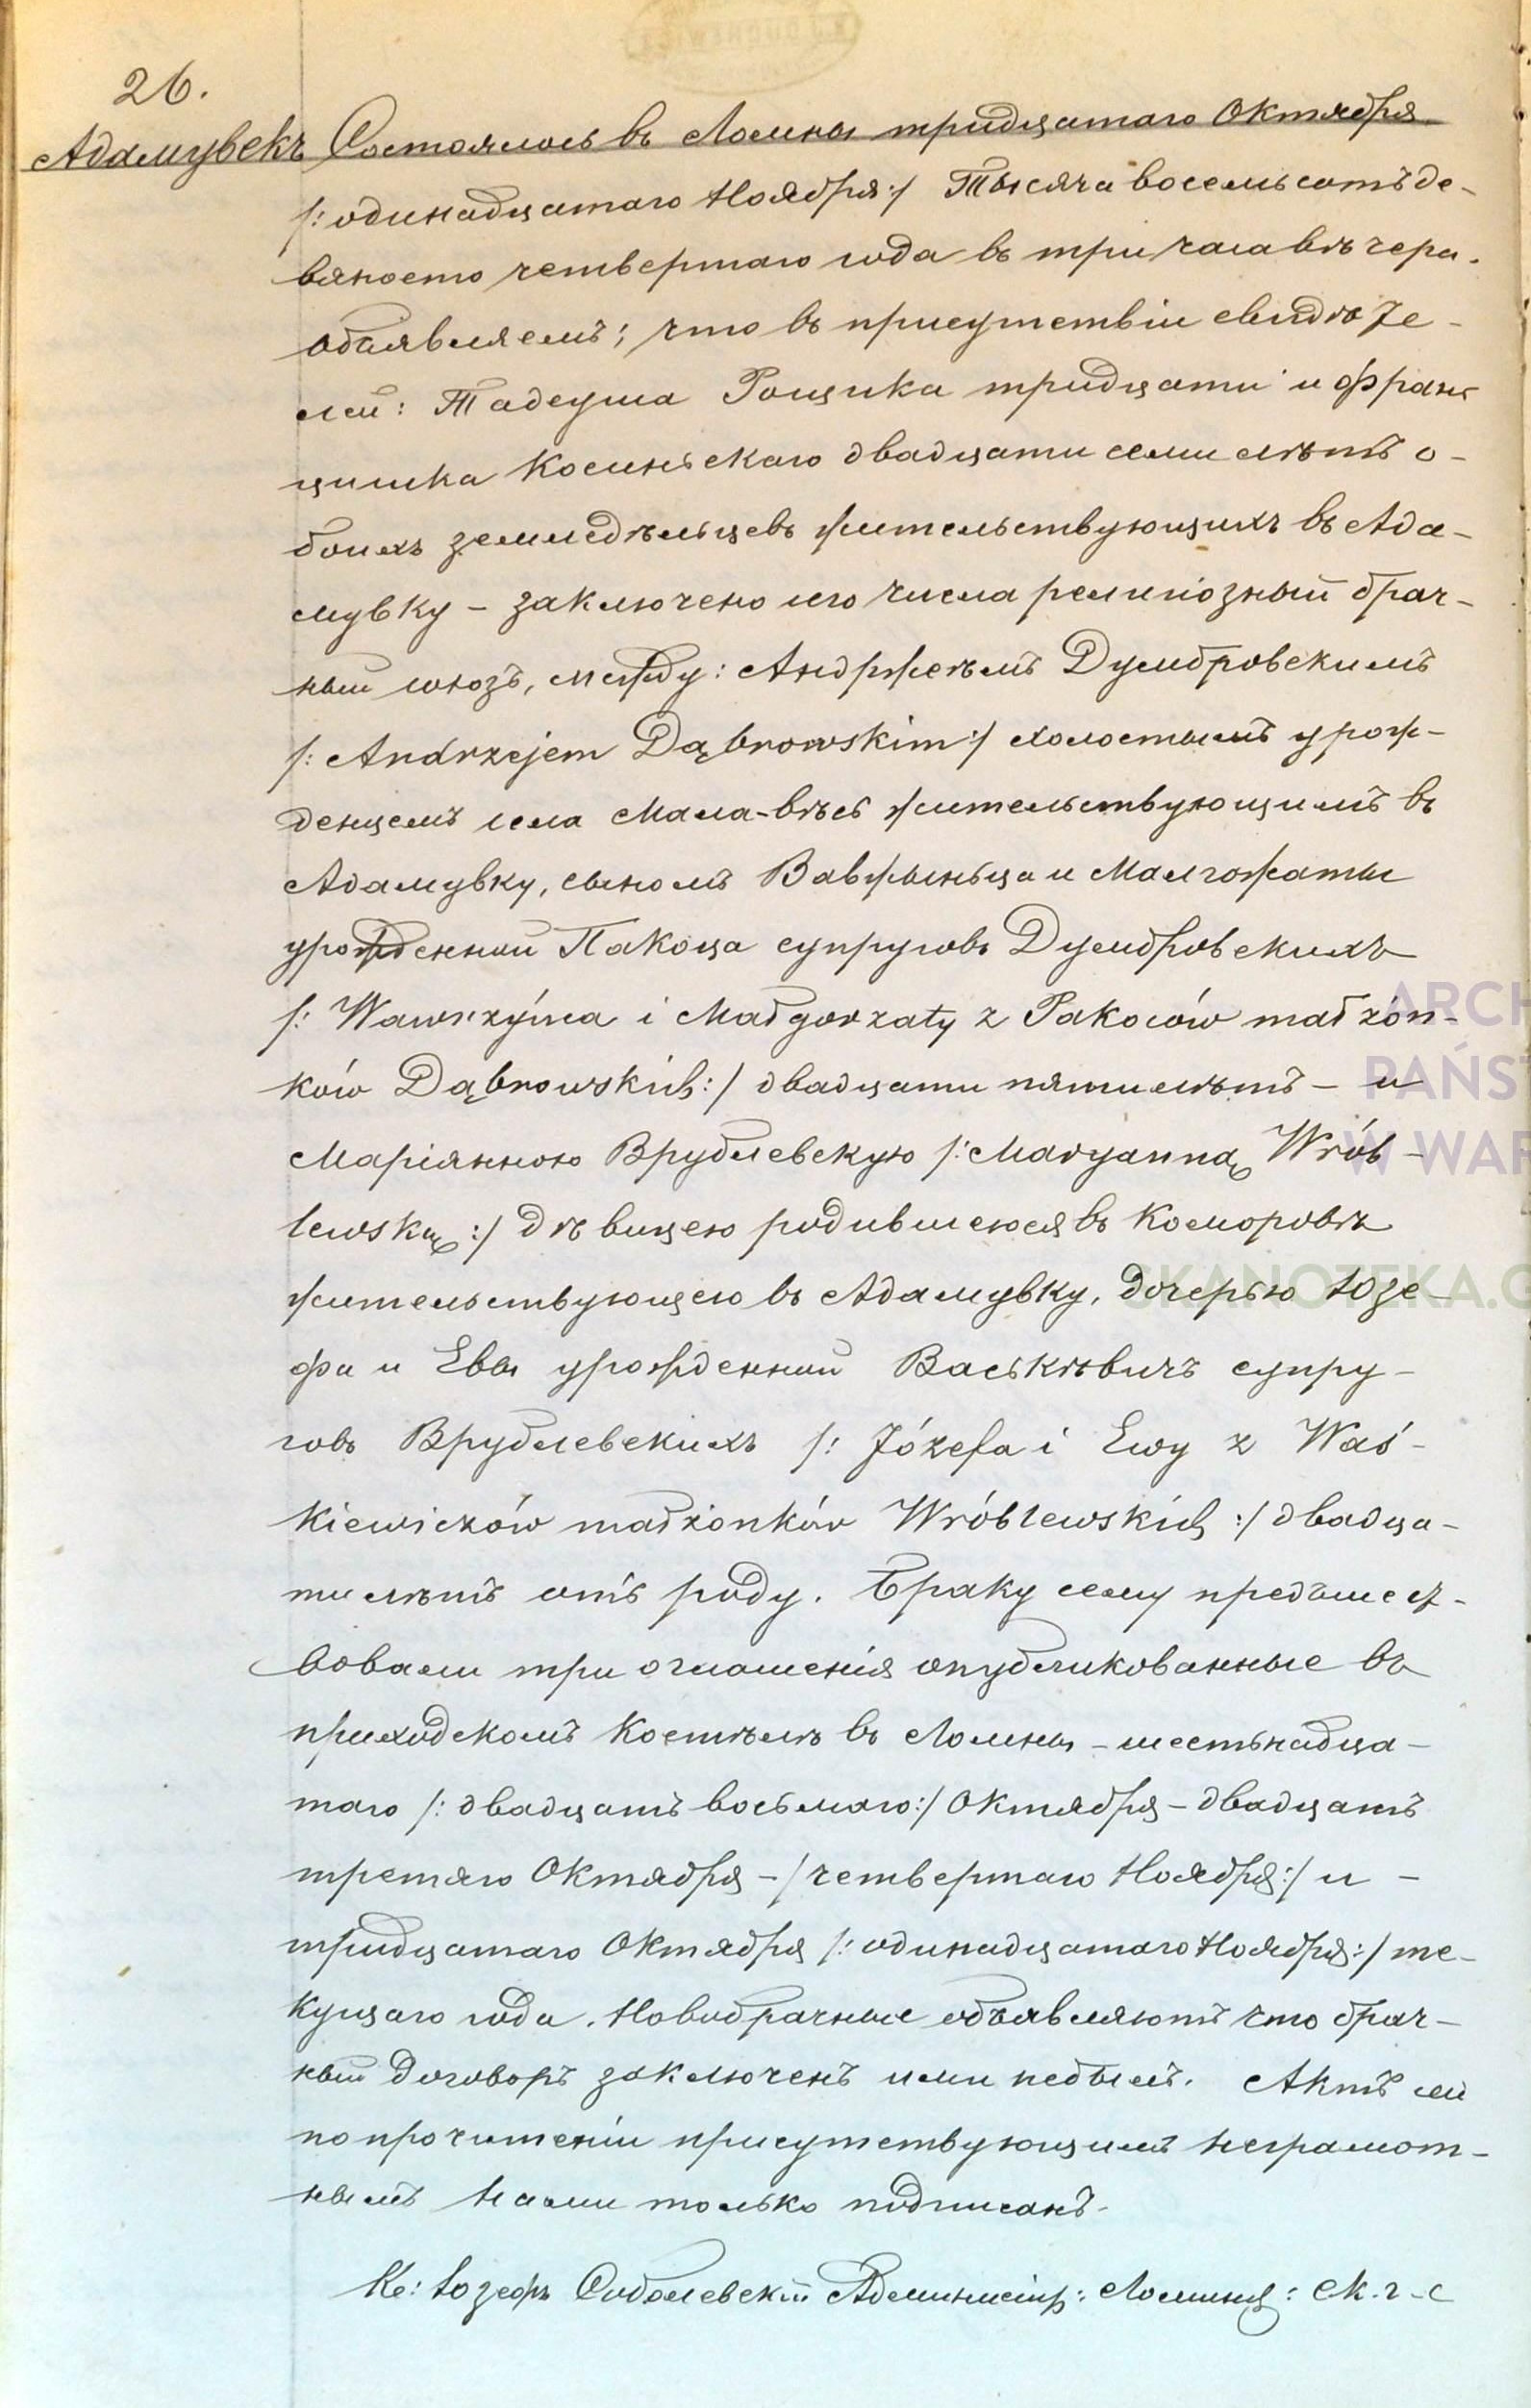 26.
Адамувекъ Состоялось въ Ломны тридцатаго Октября
/: одинадцатаго Ноября :/ Тысяча восемьсотъ де-
вяносто четвертаго года въ три часа вѣчера.
Объявляемъ; что въ присутствіи свидѣте-
лей: Тадеуша Рощика тридцати и Фран-
цишка Косиньскаго двадцати семи лѣтъ о-
боихъ земледѣльцевъ жительствующихъ въ Ада-
мувку – заключено сего числа религіозный брач-
ный союзъ, между: Анджеѣмъ Думбровскимъ
/: Andrzejem Dąbrowskim :/ холостымъ урож-
денцемъ села Мала-вѣсь жительствующимъ въ
Адамувку, сыномъ Вавжыньца и Малгожаты
урожденной Пакоца супруговъ Думбровскихъ
/: Wawrzyńca i Małgorzaty z Pakoców małżon-
ków Dąbrowskich :/ двадцати пяти лѣтъ – и
Маріянною Врублевскую /: Maryanną Wrób-
lewską :/ дѣвицею родившеюся въ Косморовѣ
жительствующею въ Адамувку, дочерью Юзе-
фа и Евы урожденной Васькѣвичъ супру-
говъ Врублевскихъ /: Józefa i Ewy z Waś-
kiewiczów małżonków Wróblewskich :/ двадца-
ти лѣтъ отъ роду. Браку сему предшест-
вовали три оглашенія опубликованные въ
приходскомъ Костѣлѣ въ Ломны – шестьнадца-
таго /: двадцатъ восьмаго :/ Октября – двадцатъ
третяго Октября – / четвертаго Ноября :/ и –
тридцатаго Октября /: одинадцатаго Ноября :/ те-
кущаго года. Новобрачные объявляютъ что брач-
ный договоръ заключенъ ими небылъ. Актъ сей
по прочитеніи присутствующимъ неграмот-
нымъ Нами только подписанъ.
Кс: Юзефъ Соболевскій Администр: Ломны: М. г - с
ARCH
PAŃST
W WAR
SKANOTEKA.G